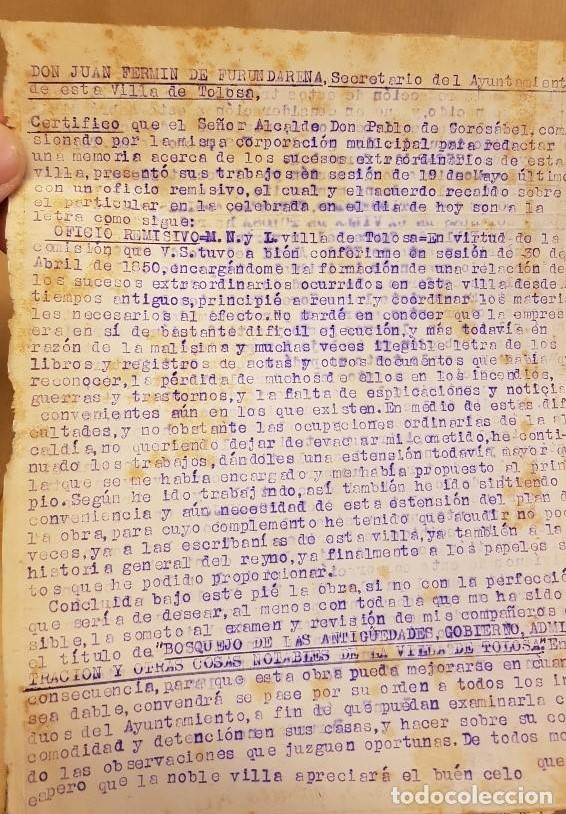 DON JUAN FERMIN DE FURUNDARENA, Secretario del Ayuntamient
de esta Villa de Tolosa,
Certifico que el Señor Alcalde Don Pablo de Gorosábel, com
sionado por la misma corporación municipal para redactar
una memoria acerca de los sucesos extraordinarios de esta
villa, presentó sus trabajos en sesión de 19 de Mayo último
con un oficio remisivo, el cual y el acuerdo recaido sobre
el particular en la celebrada en el dia de hoy son a la
letra como sigue:
OFICIO REMISIVO=M.N. y L. villa de Tolosa-En virtud de la
comisión que V.S. tuvo a bién conferirme en sesión de 30 de
Abril de 1850, encargándome la formación de una relación de
los sucesos extraordinarios ocurridos en esta villa desde
tiempos antiguos, principié a reunir y coordinar los materia
les necesarios al efecto. No tardé en conocer que la empres
era en sí de bastante dificil ejecución, y más todavia en
razón de la malísima y muchas veces ilegible letra de los
libros y registros de actas y otros documentos que había q
reconocer, la pérdida de muchos de ellos en los incendios,
guerras y trastornos, y la falta de esplicaciónes y noticia
convenientes aún en los que existen. En médio de estas dif
cultades, y no obstante las ocupaciones ordinarias de la al
caldía, no queriendo dejar de evacuar mi cometido, he conti-
nuado los trabajos, dándoles una estensión todavia mayor q
la que se me había encargado y me había propuesto al prin
pio. Según he ido trabajando, así también he ido sintiendo
conveniencia y aún necesidad de esta estensión del plan d
la obra, para cuyo complemento he tenido que acudir no po
veces, ya a las escribanías de esta villa, ya también a la
historia general del reyno, ya finalmente a los papeles s
tos que he podido proporcionar.
Concluida bajo este pié la obra, si no con la perfecció
que sería de desear, al menos con toda la que me ha sido
sible, la someto al examen y revisión de mis compañeros
el título de "BOSQUEJO DE LAS ANTIGÜEDADES, GOBIERNO, ADMI
TRACION Y OTRAS COSAS NOTABLES DE LA VILLA DE TOLOSA" En
consecuencia, para que esta obra pueda mejorarse en cuan
sea dable, convendrá se pase por su orden a todos los in
duos del Ayuntamiento, a fin de que puedan examinarla c
comodidad y detención en sus casas, y hacer sobre su co
do las observaciones que juzguen oportunas. De todos mo
espero que la noble villa apreciará el buén celo que
todocoleccion.net